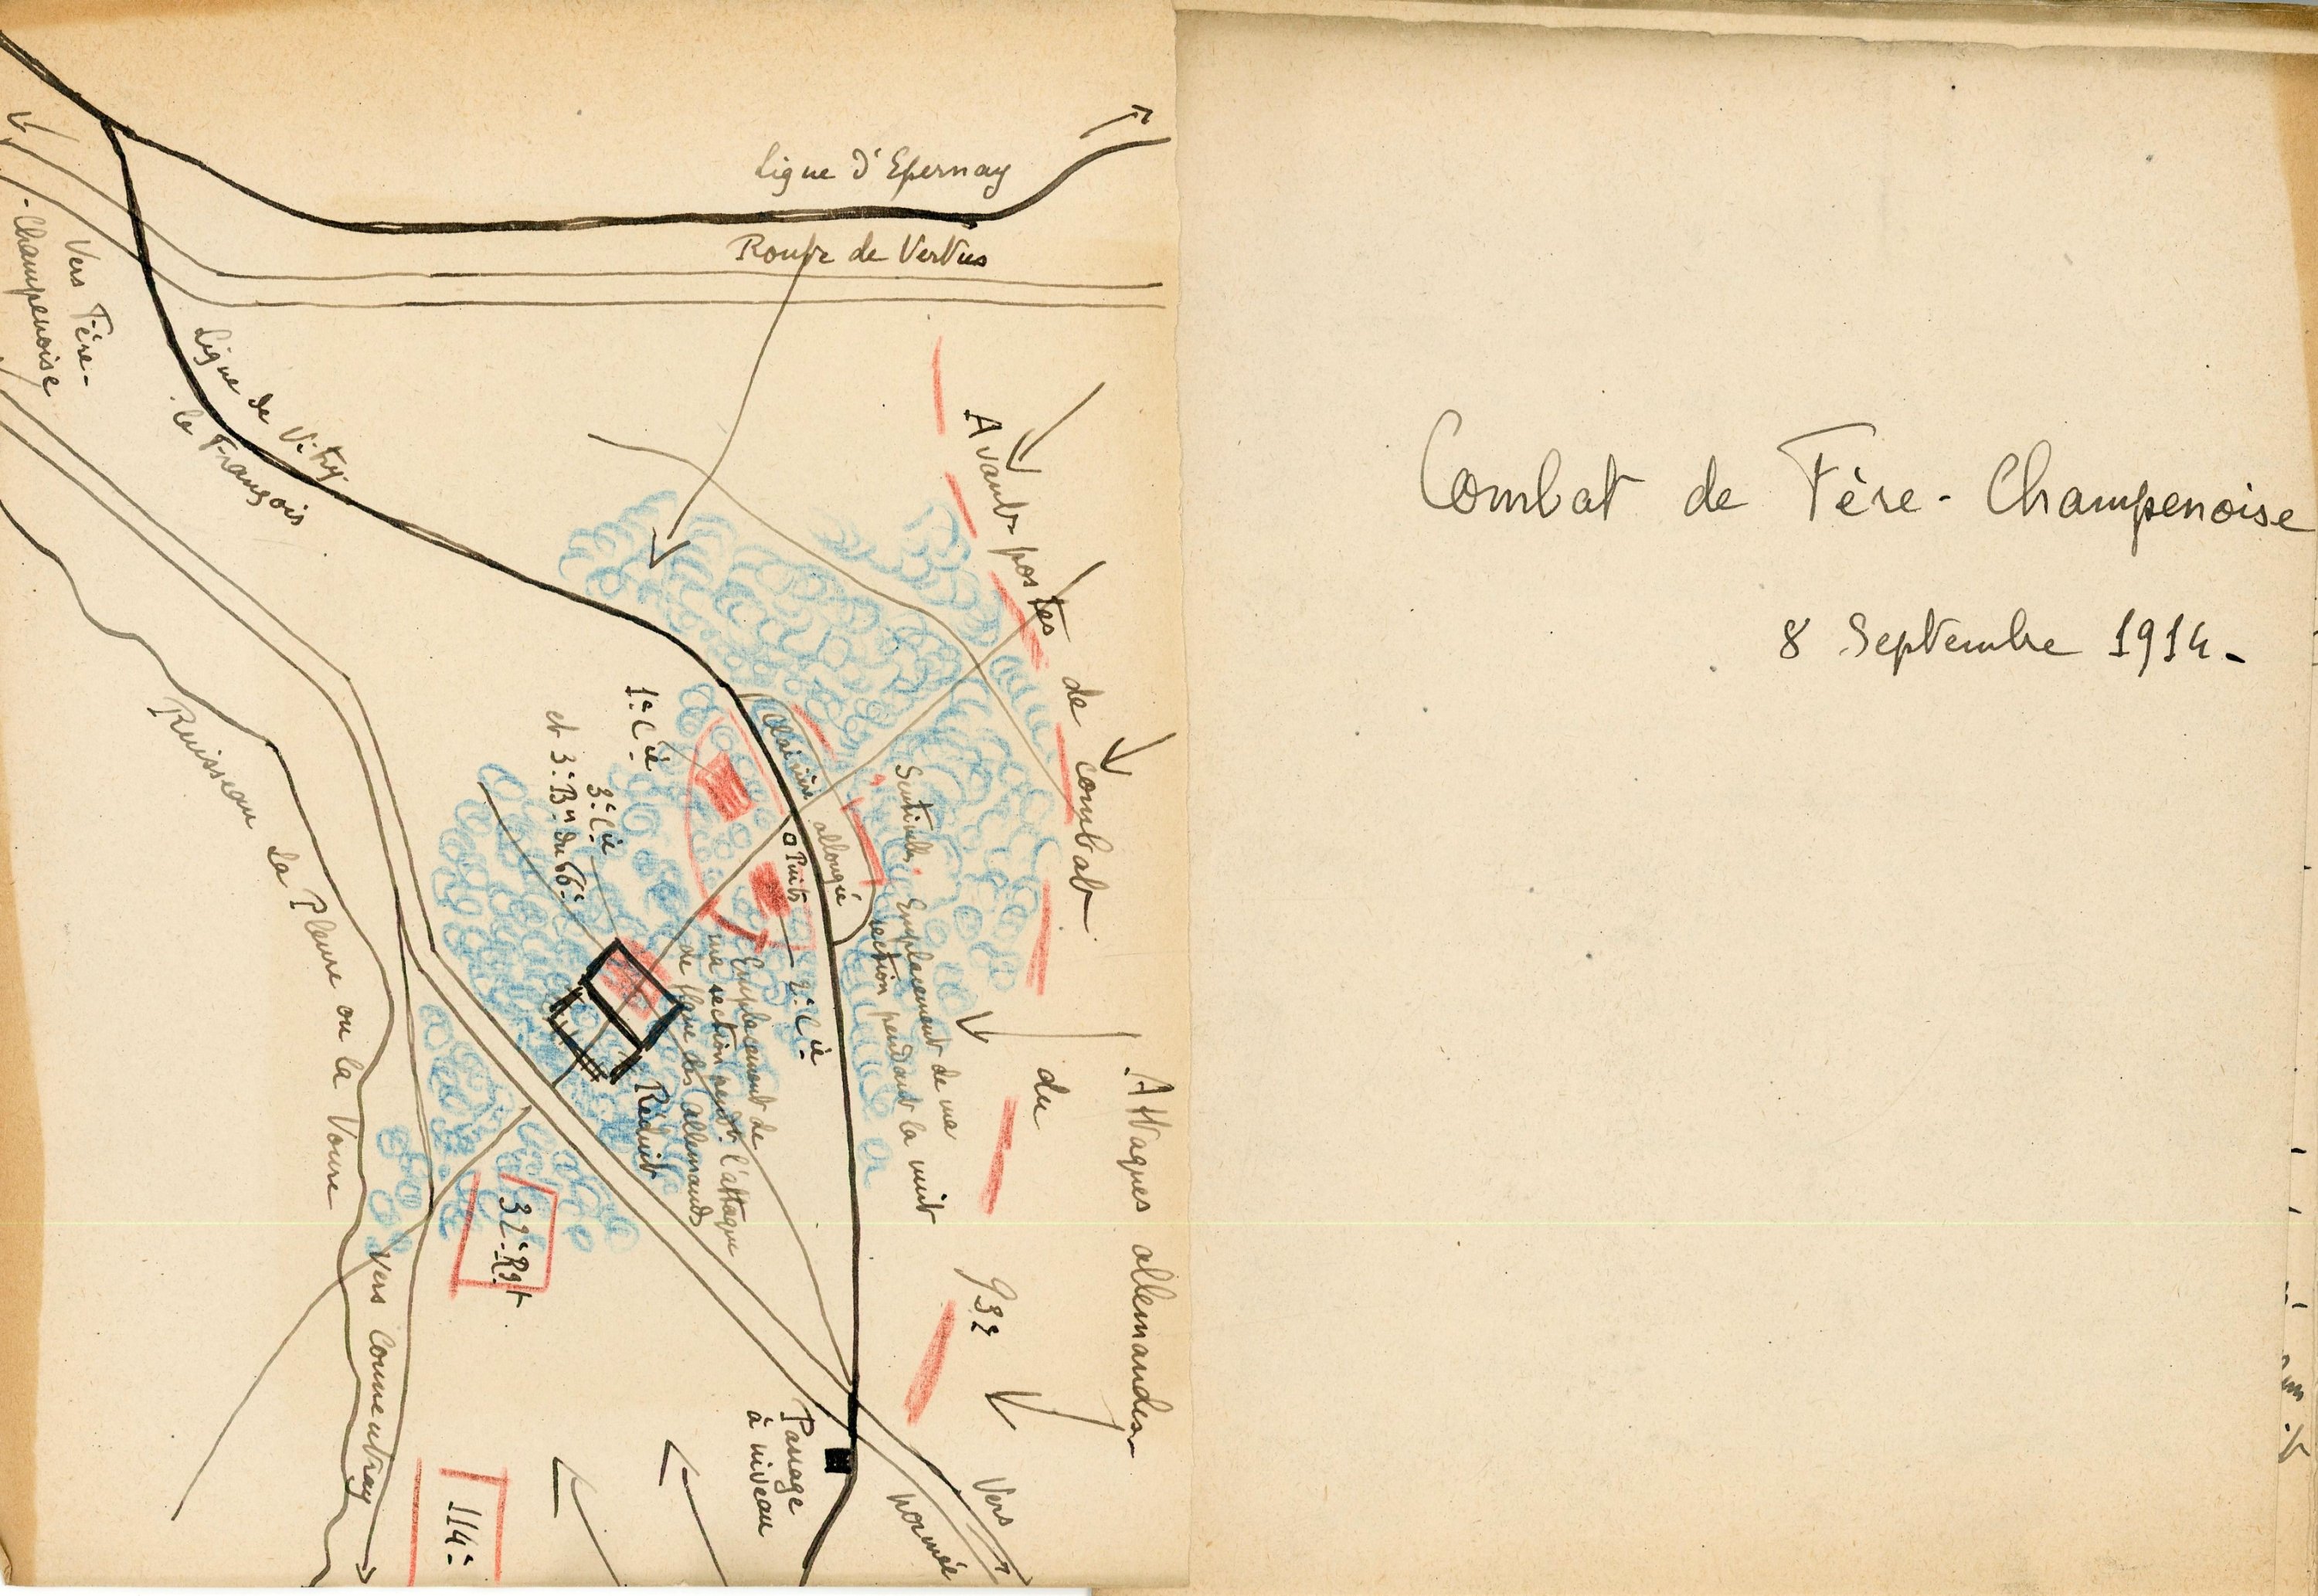 Ligne d'Epernay
Route de Vertus
Vers Fère-
-Champenoise
Ligne de Vitry
le François
Avants postes de combat du 93e
Attaques allemandes
Clairière allongée
Sentinelles
Emplacement de ma
section pendant la nuit
Puits
1e Cie
2e Cie
3e Cie
et 3e Bn du 66e
Emplacement de
ma section pendt. l'attaque
de flanc des allemands
Réduit
Ruisseau la Pleure ou la Vaure
32e Rgt
114e
vers Connentray
Passage
à niveau
Vers
Normée
Combat de Fère-Champenoise
8 Septembre 1914-